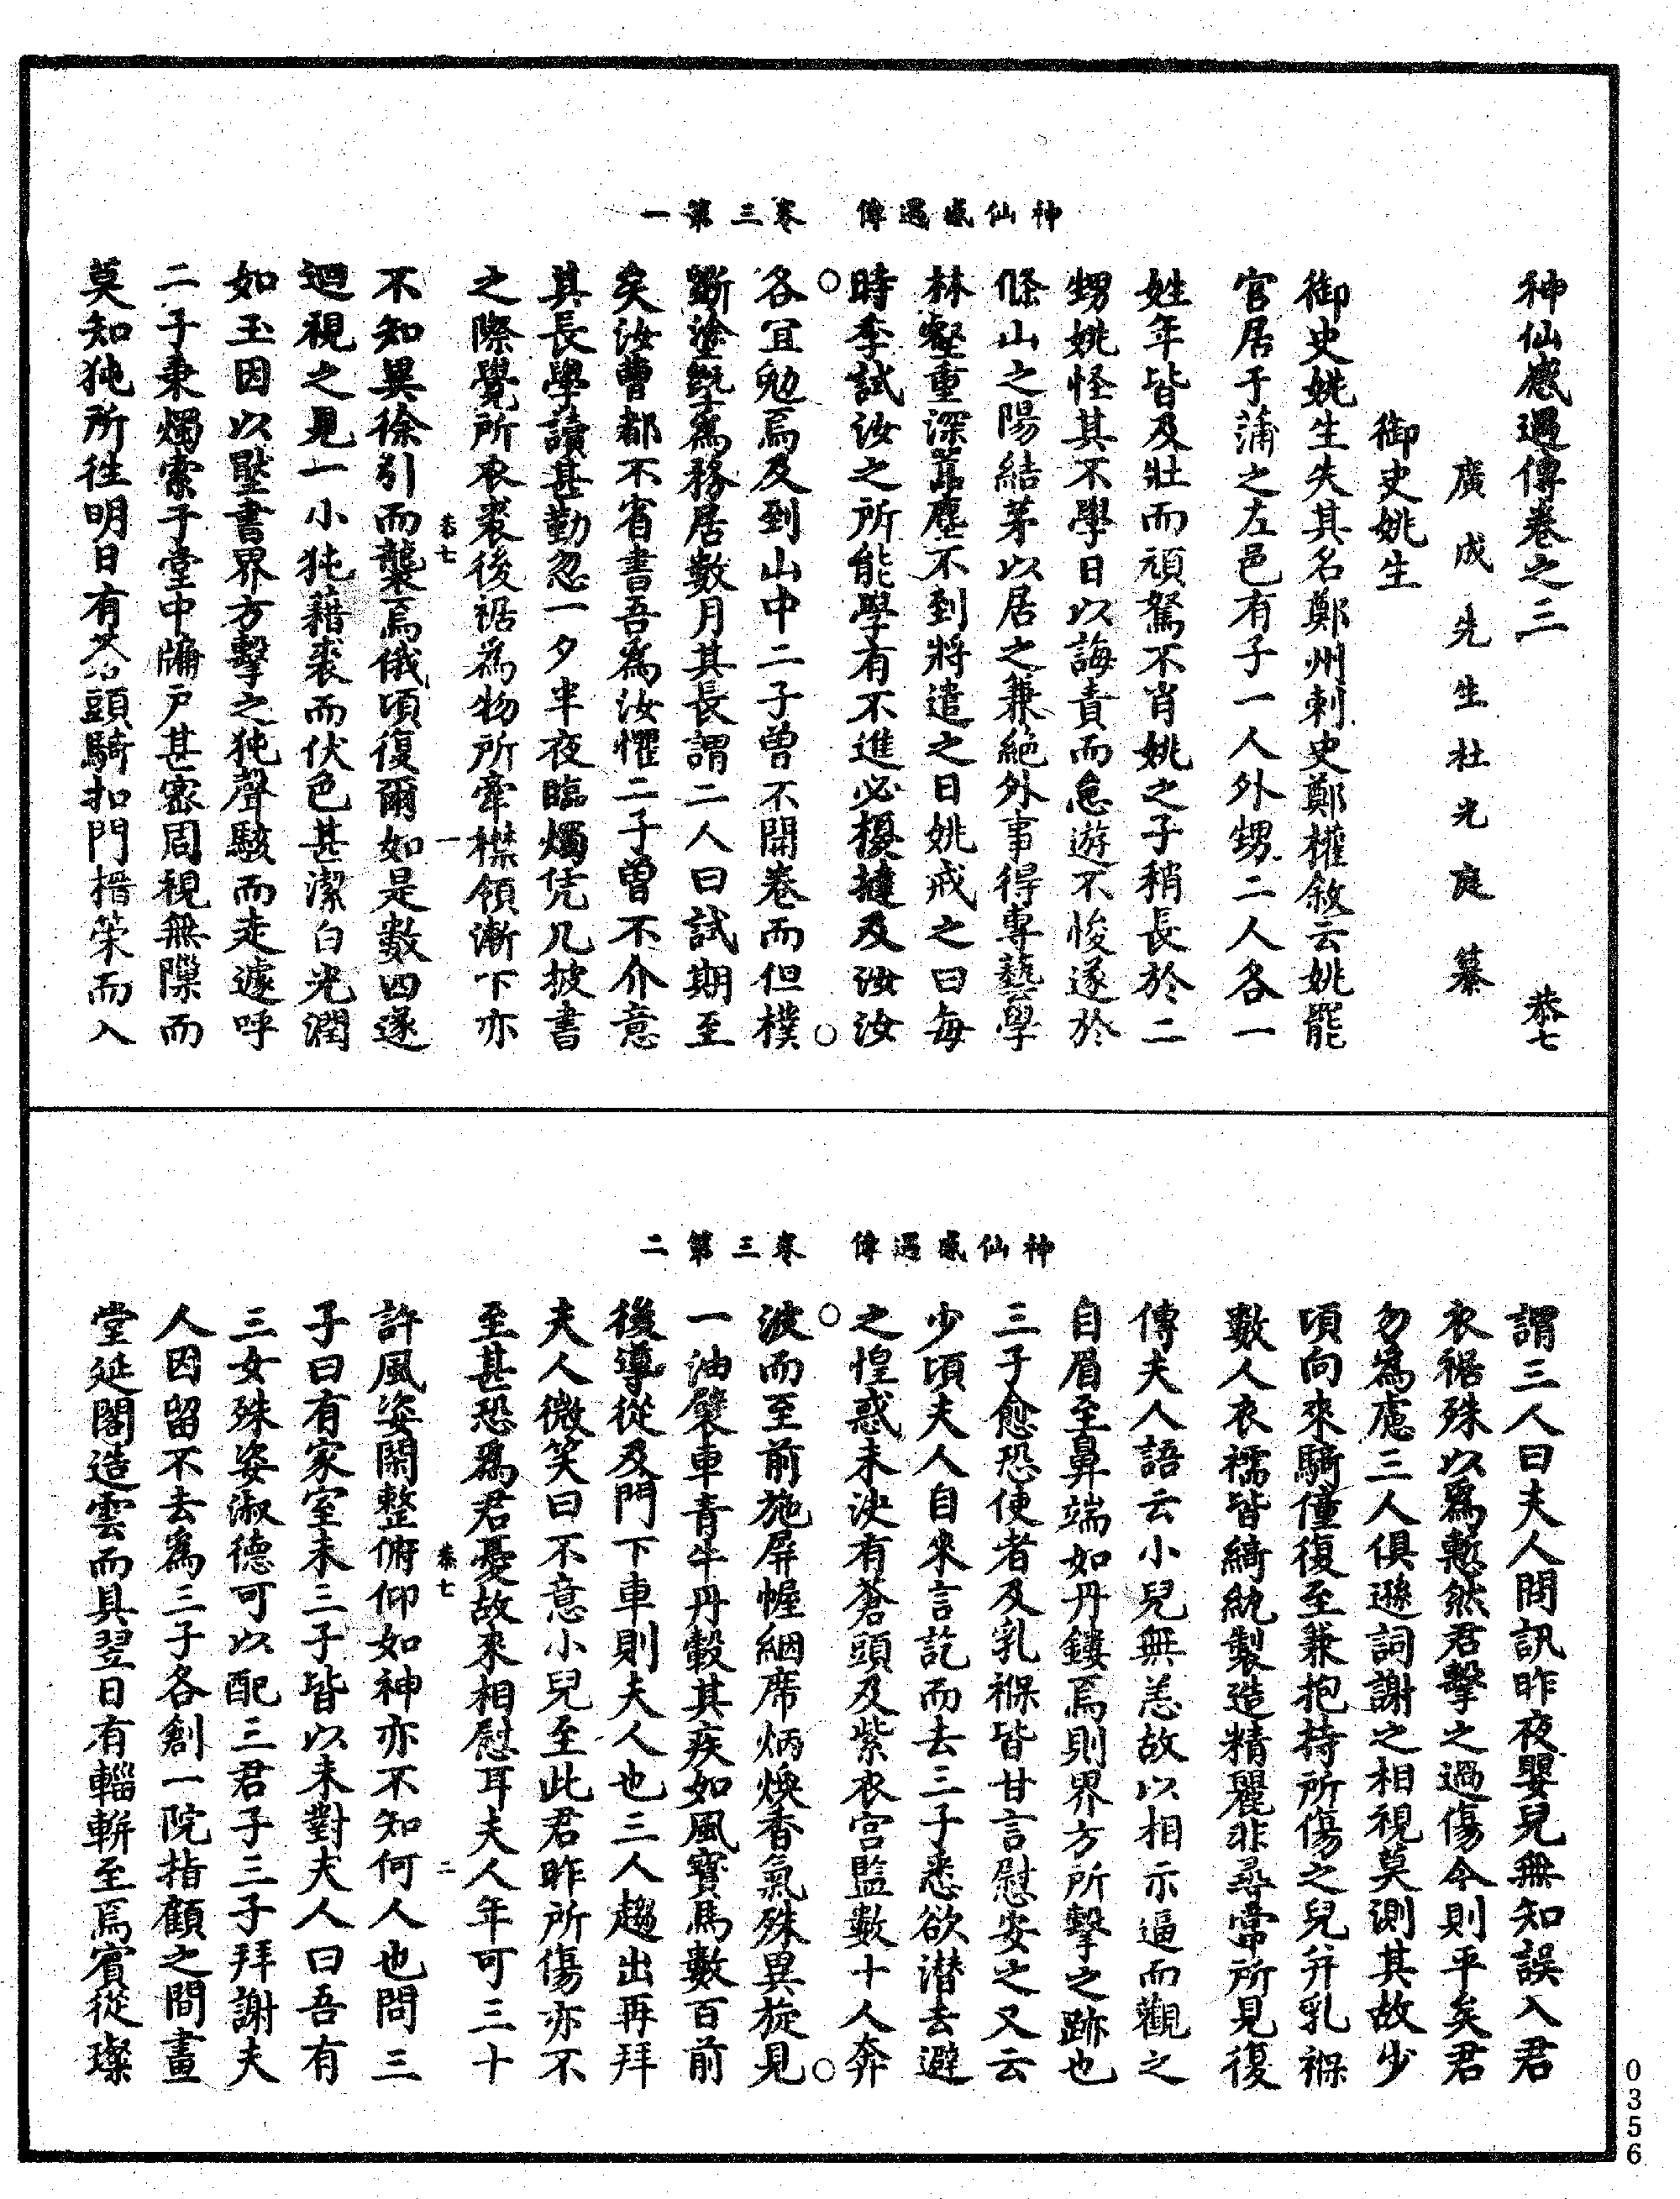 神仙感遇傳　卷三第一
神仙感遇傳卷之三　恭七
廣成先生杜光庭纂
御史姚生
御史姚生失其名鄭州刺史鄭權敘云姚罷
官居于蒲之左邑有子一人外甥二人各一
姓年皆及壯而頑駑不肖姚之子稍長於二
甥姚恠其不學日以誨責而怠遊不悛遂於
條山之陽結茅以居之兼絕外事得專藝學
林壑重深嚻塵不到將遣之日姚戒之曰每
時季試汝之所能學有不進必榎撻及汝汝
各宜勉焉及到山中二子曾不開卷而但樸
斲塗墍為務居數月其長謂二人曰試期至
矣汝曹都不省書吾為汝懼二子曾不介意
其長學讀甚勤忽一夕半夜臨燭凭几披書
之際覺所衣裘後裾為物所牽襟領漸下亦
恭七　一
不知異徐引而襲焉俄頃復爾如是數四遂
迴視之見一小㹠藉裘而伏色甚潔白光潤
如玉因以壓書界方擊之㹠聲駭而走遽呼
二子秉燭索于堂中牖戶甚密周視無隟而
莫知㹠所往明日有蒼頭騎扣門搢笏而入
神仙感遇傳　卷三第二
謂三人曰夫人問訊昨夜嬰兒無知誤入君
衣裾殊以為慙然君擊之過傷今則平矣君
勿為慮三人俱遜詞謝之相視莫測其故少
頃向來騎僮復至兼抱持所傷之兒并乳褓
數人衣襦皆綺紈製造精麗非尋常所見復
傳夫人語云小兒無恙故以相示逼而觀之
自眉至鼻端如丹鏤焉則界方所擊之跡也
三子愈恐使者及乳褓皆甘言慰安之又云
少頃夫人自來言訖而去三子悉欲潛去避
之惶惑未決有蒼頭及紫衣宮監數十人奔
波而至前施屏幄絪席炳煥香氣殊異旋見
一油襞車青牛丹轂其疾如風寶馬數百前
後導從及門下車則夫人也三人趨出再拜
夫人微笑曰不意小兒至此君昨所傷亦不
至甚恐為君憂故來相慰耳夫人年可三十
恭七　二
許風姿閑整俯仰如神亦不知何人也問三
子曰有家室未三子皆以未對夫人曰吾有
三女殊姿淑德可以配三君子三子拜謝夫
人因留不去為三子各創一院指顧之間畫
堂延閣造雲而具翌日有輜軿至焉賓從璨
0356